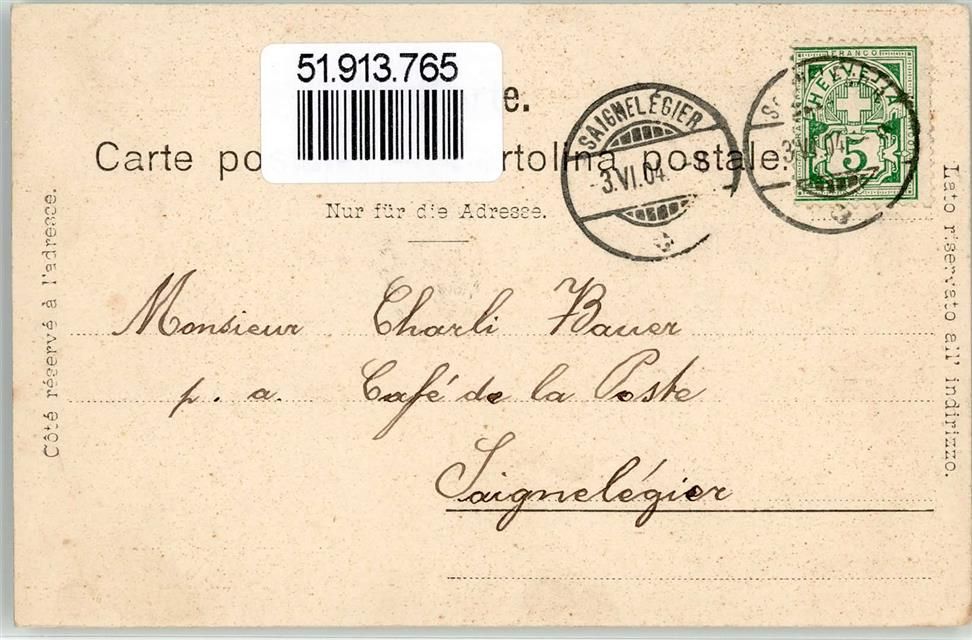 51.913.765
e.
Carte po rtolina postale.
Nur für die Adresse.
FRANCO
HELVETIA
5
SAIGNELÉGIER
3.VI.04. -8
3.VI.04
Côté réservé à l'adresse.
Lato riservato all' indirizzo.
Monsieur Charli Bauer
p. a. Café de la Poste
Saignelégier